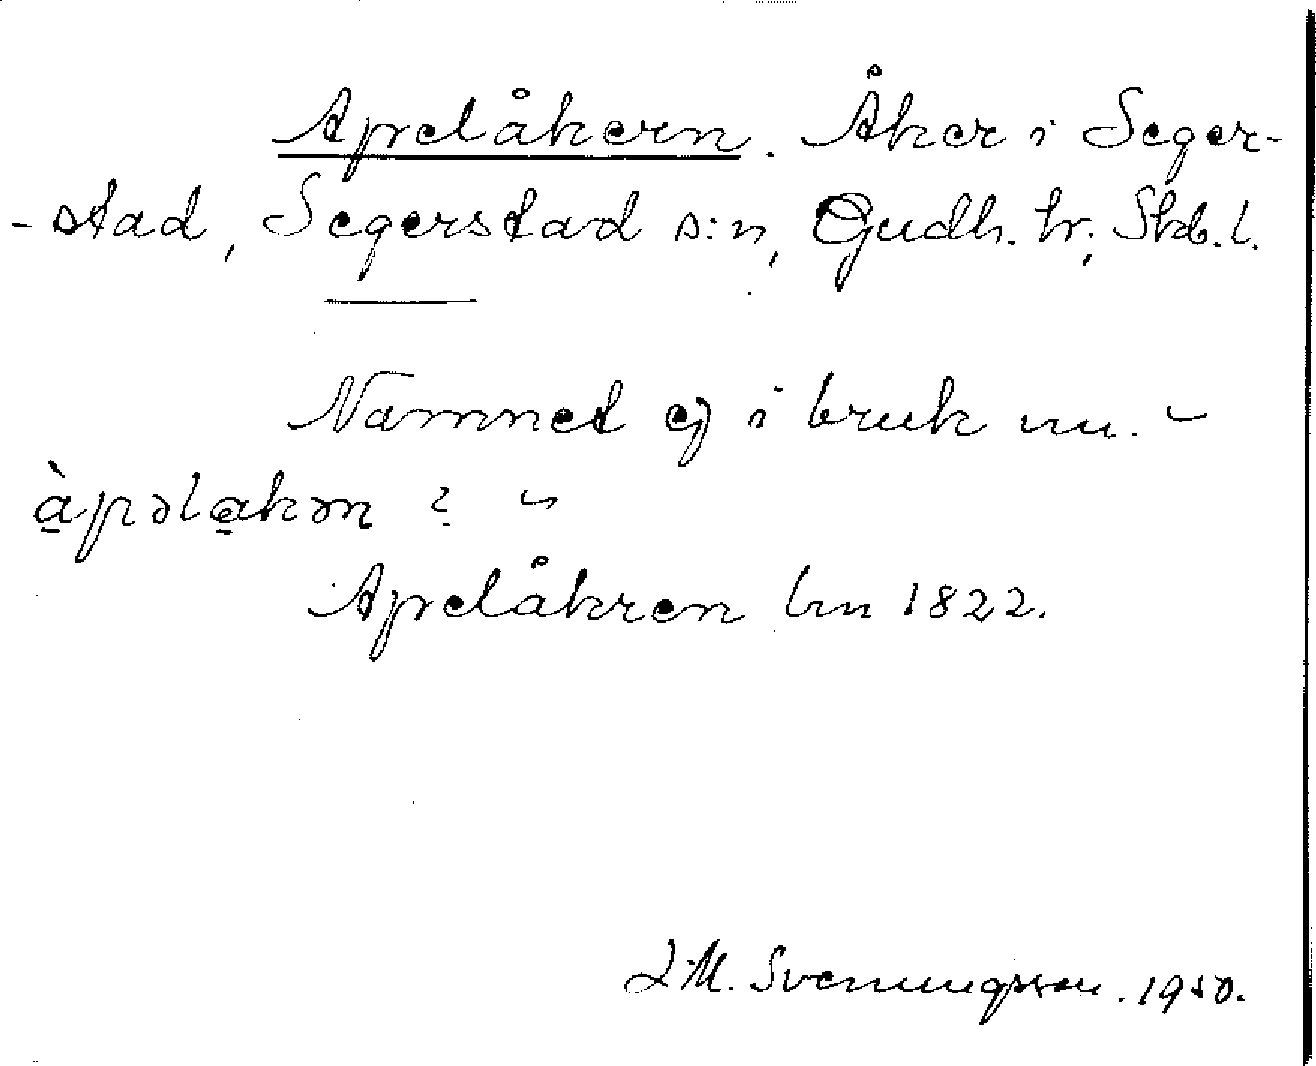 Apelåkern. Åker i Seger-
-stad, Segerstad s:n, Gudh. hr; Skb. l.
Namnet ej i bruk nu. ~
à̱pəla̱kən ? ~
Apelåkren lm 1822.
L.M. Svenungsson. 1950.